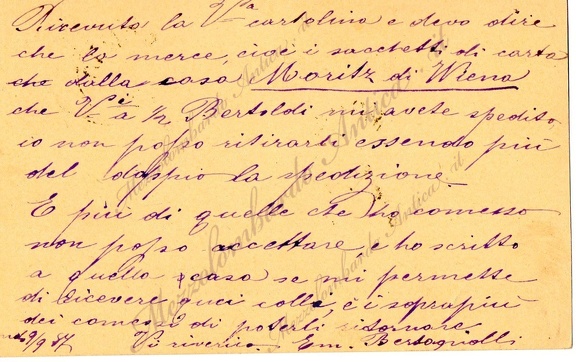 Ricevuta la Vª cartolina e devo dire
che la merce, cioè i sacchetti di carta
che dalla casa Moritz di Viena
che Vⁱ a ½ Bertoldi mi avete spedito
io non posso ritirarli essendo più
del doppio la spedizione.
E più di quelle che ho comesso
non posso accettare, e ho scritto
a quella casa se mi permette
di ricevere quei colli, e i soprapiù
dei comessi di poterli ritornare
29/9 87 Vi riverisco Em. Bertagnolli
Mezzolombardo Antica .it